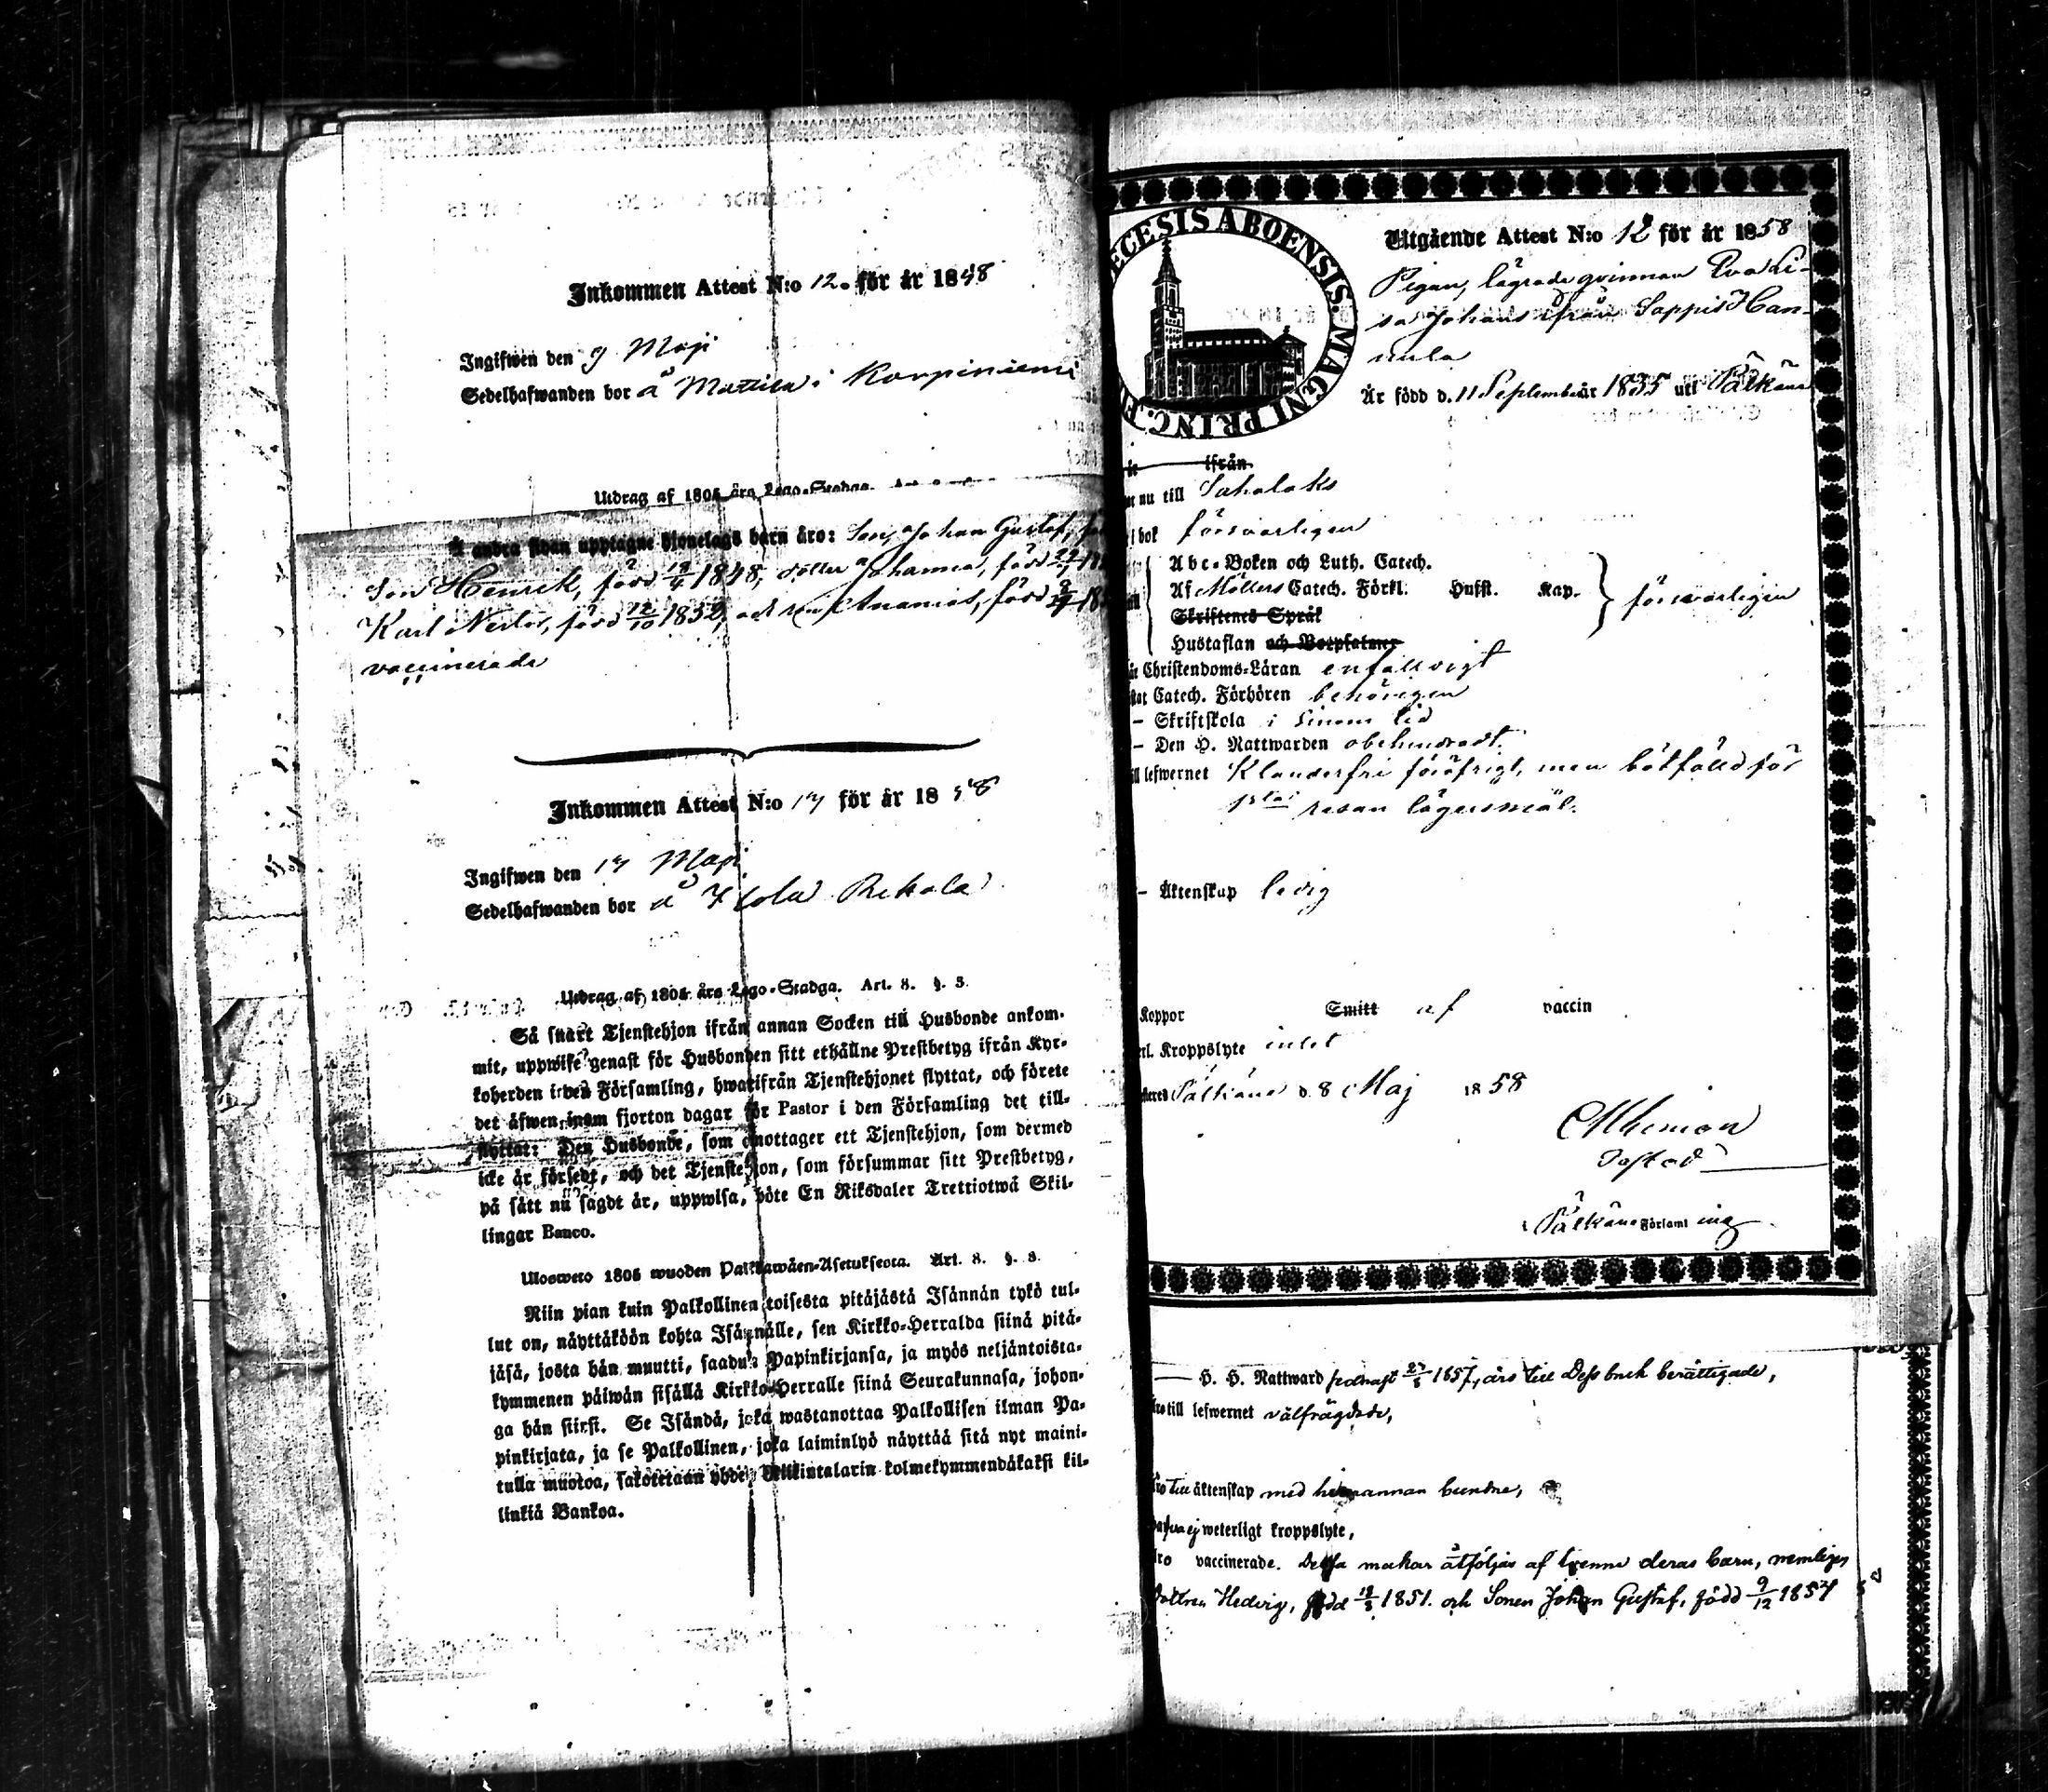 Inkommen Attest N:o 12. för år 1858
Ingifwen den 9 Maji
Sedelhafwanden bor å Mattila i Korpiniemi
Utdrag af 1805 års Lego-Stadga.
Å andra sidan upptagne hjonelags barn äro: Son, Johan Gustaf,
Son Henrik, född 18/4 1848, dotter Johanna, född
Karl Nestor, född 12/10 1852, och son Ananias, född
vaccinerade
Inkommen Attest N:o 17 för år 1858
Ingifwen den 17 Maji
Sedelhafwanden bor å Ilola Rekola
Utdrag af 1805 års Lego-Stadga. Art. 8. §. 3.
Så snart Tjenstehjon ifrån annan Socken till Husbonde ankom-
mit, uppwise genast för Husbonden sitt erhållne Prestbetyg ifrån Kyr-
koherden i den Församling, hwarifrån Tjenstehjonet flyttat, och förete
det äfwen inom fjorton dagar för Pastor i den Församling det till-
flyttat: Den Husbonde, som emottager ett Tjenstehjon, som dermed
icke är försedt, och det Tjenstehjon, som försummar sitt Prestbetyg,
på sätt nu sagdt är, uppwisa, böte En Riksdaler Trettiotwå Skil-
lingar Banco.
Ulosweto 1805 wuoden Palkkawäen-Asetuksesta. Art. 8. §. 3.
Niin pian kuin Palkollinen toisesta pitäjästä Isännän tykö tul-
lut on, näyttäköön kohta Isännälle, sen Kirkko-Herralda siinä pitä-
jäsä, josta hän muutti, saadun Papinkirjansa, ja myös neljäntoista-
kymmenen päiwän sisällä Kirkko-Herralle siinä Seurakunnasa, johon-
ga hän siirsi. Se Isändä, joka wastanottaa Palkollisen ilman Pa-
pinkirjata, ja se Palkollinen, joka laiminlyö näyttää sitä nyt maini-
tulla muotoa, sakotetaan yhden Riikintalarin kolmekymmendäkaksi kil-
linkiä Bankoa.
ECESIS ABOENSIS. MAGNI PRINC. F
Utgående Attest N:o 12 för år 1858
Pigan, lägrade qvinnan Eva Li-
sa Johans dr ifrån Sappis Han-
nula
Är född d. 11 September år 1835 uti Pälkäne
ifrån
nu till Sahalaks
i bok försvarligen
Abc-Boken och Luth. Catech.
Af Möllers Catech. Förkl. Hufst. Kap. försvarligen
Skriftenes Språk
Hustaflan och Botpsalmer
Christendoms-Läran enfalldigt
Catech. Förhören behörigen
– Skriftskola i sinom tid
– Den H. Nattwarden obehindradt.
till lefwernet Klanderfri föröfrigt, men bötfälld för
1sta resan lägersmål.
– Äktenskap ledig
Koppor Smitt af vaccin
Kroppslyte intet
Pälkäne d. 8 Maj 1858
Pastor
i Pälkäne Församling
H. H. Nattward sednast 1857, äro till dess bruk berättigade,
till lefwernet välfrägdade,
äro till äktenskap med hvarannan bundne,
hafwa ej weterligt kroppslyte,
äro vaccinerade. Dessa makar åtföljas af tvenne deras barn, nemligen
Dottren Hedvig, född 18/3 1851. och Sonen Johan Gustaf, född 9/12 1854